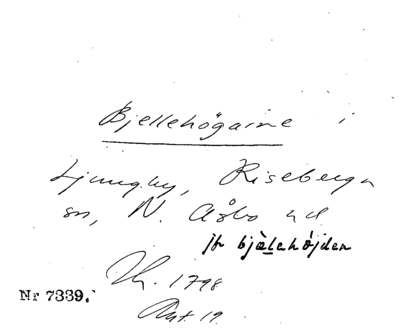 Bjellehögarne i
Ljungby, Riseberga
sn, N. Åsbo hd
jfr bjälehöjden
1798
Nr 7339.
Akt. 19.